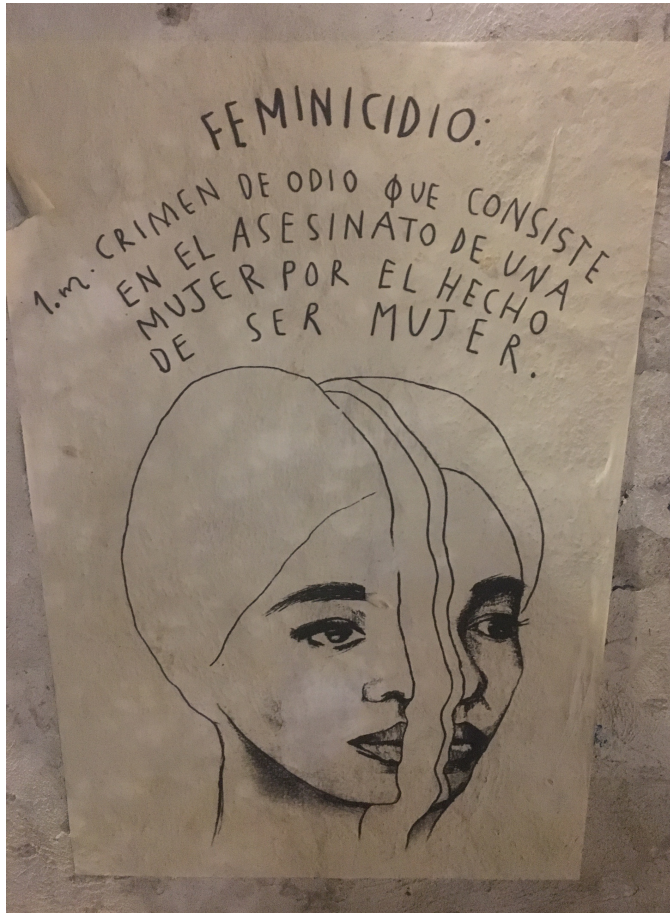 FEMINICIDIO:
1.m. CRIMEN DE ODIO QUE CONSISTE
EN EL ASESINATO DE UNA
MUJER POR EL HECHO
DE SER MUJER.